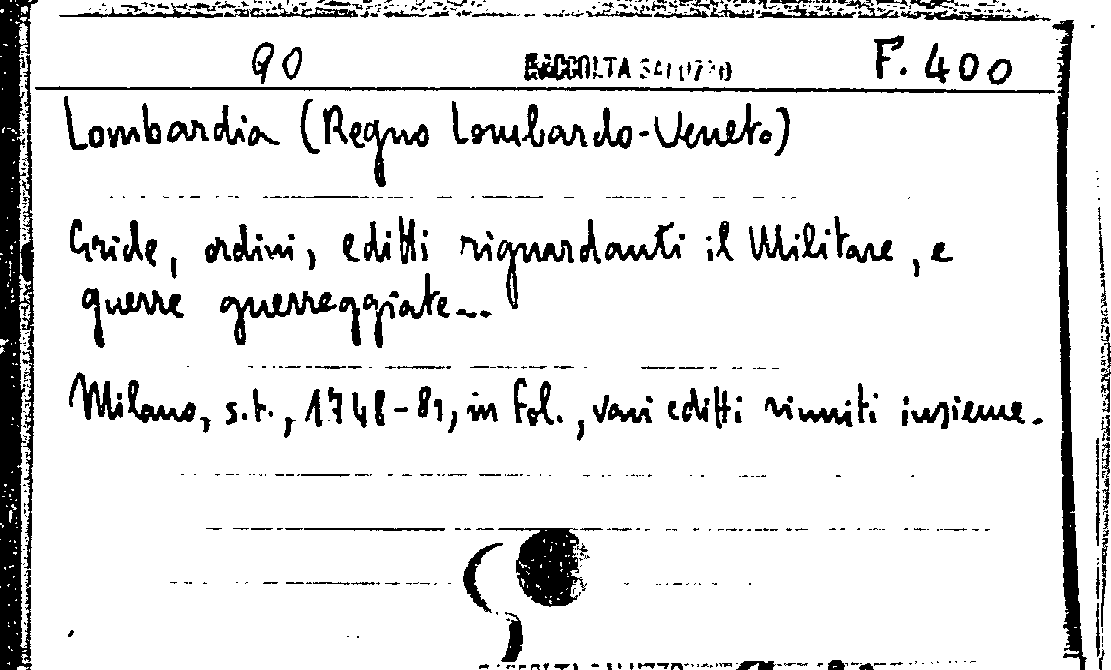 90 RACCOLTA SALUZZO F. 400
Lombardia (Regno Lombardo-Veneto)
Gride, ordini, editti riguardanti il Militare, e
guerre guerreggiate...
Milano, s.t., 1748-81, in fol., vari editti riuniti insieme.
RACCOLTA SALUZZO